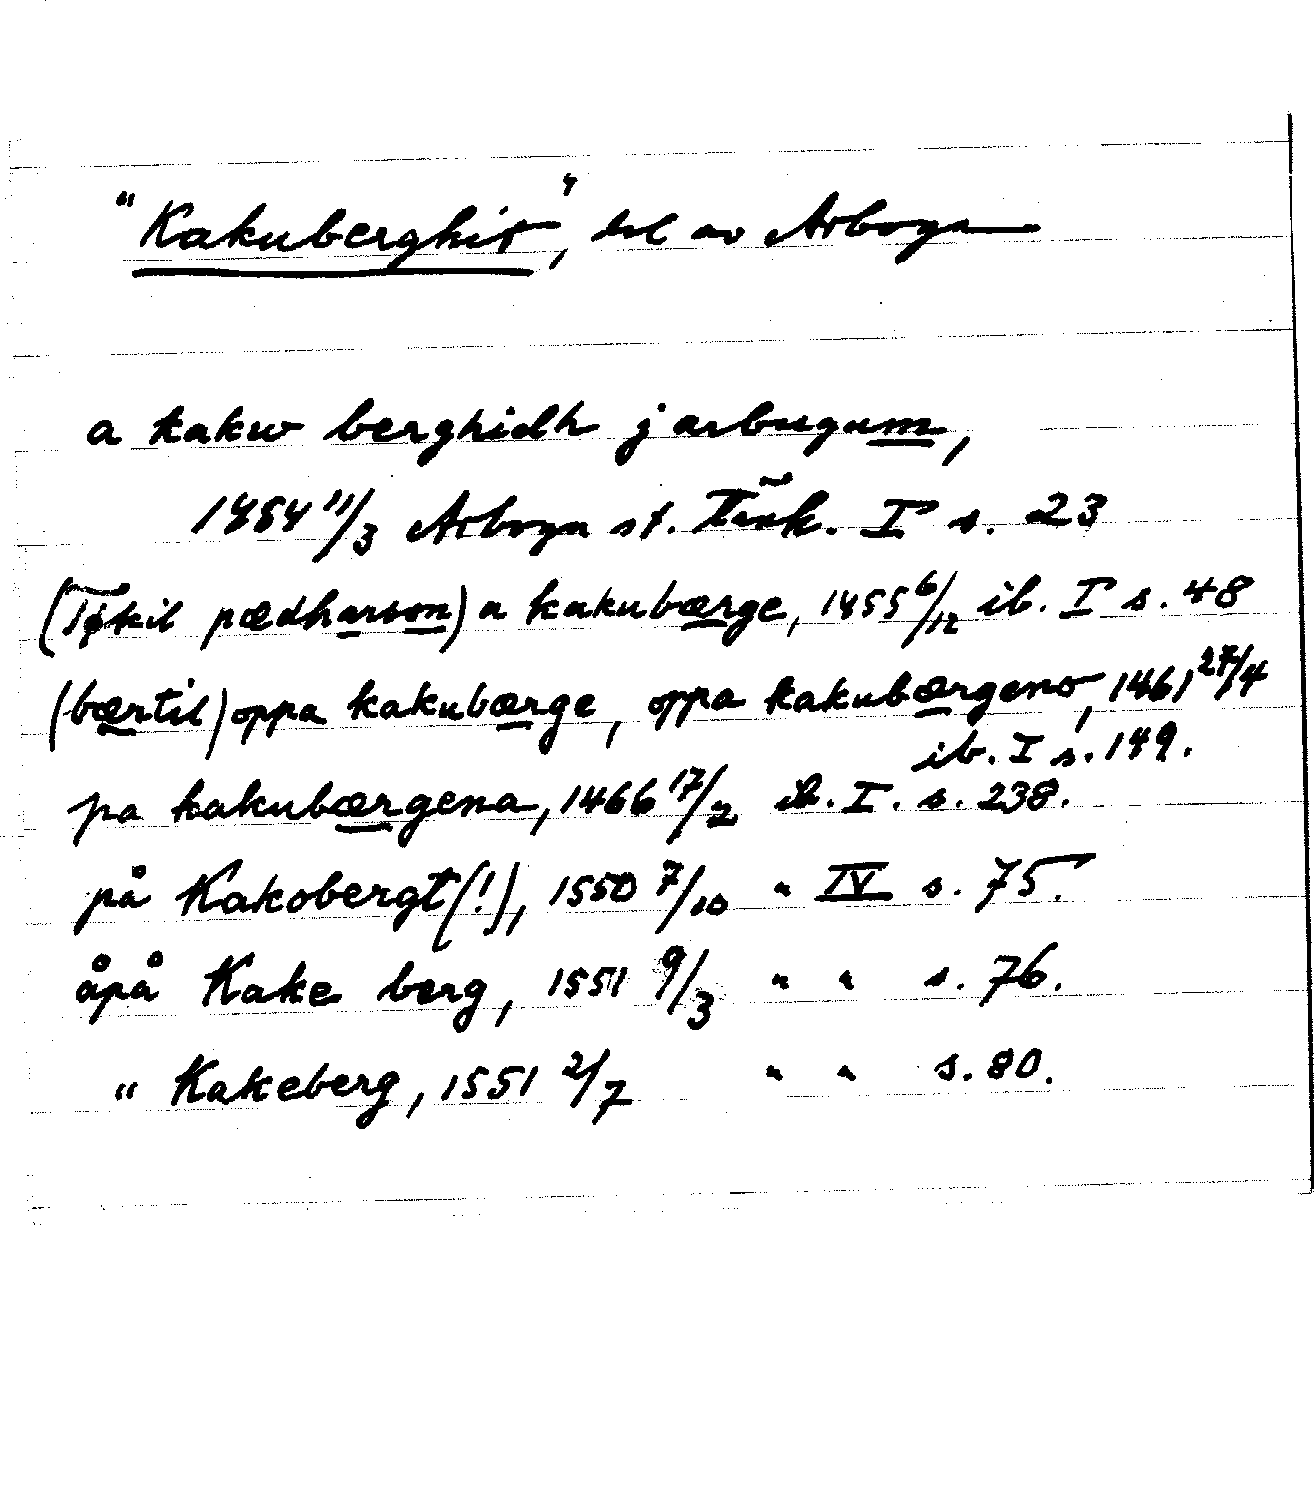 "Kakuberghit", del av Arboga
a kakw berghidh j arbugum,
1454 11/3 Arboga st. Tänk. I s. 23
(Tøkil pædharson) a kakubærge, 1455 6/12 ib. I s. 48
(bærtil) oppa kakubærge, oppa kakubærgeno, 1461 27/4
ib. I s. 149.
pa kakubærgena, 1466 17/2 ib. I. s. 238.
på Kakobergt(!), 1550 7/10 " IV s. 75.
åpå Kake berg, 1551 9/3 " " s. 76.
" Kakeberg, 1551 2/7 " " s. 80.